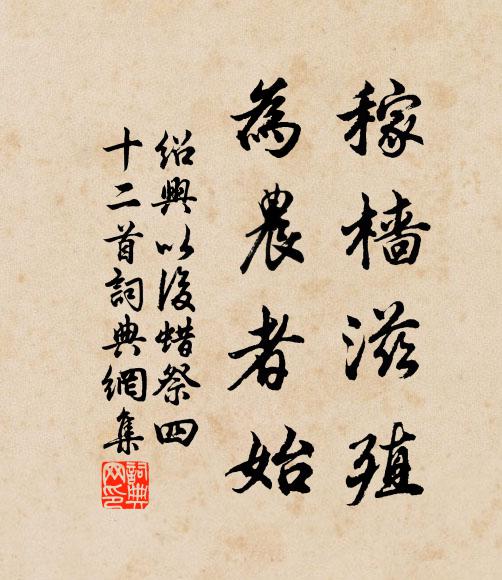 稼檣滋殖
為農者始
紹興以後蜡祭四
十二首詞典網集
詞典
网印